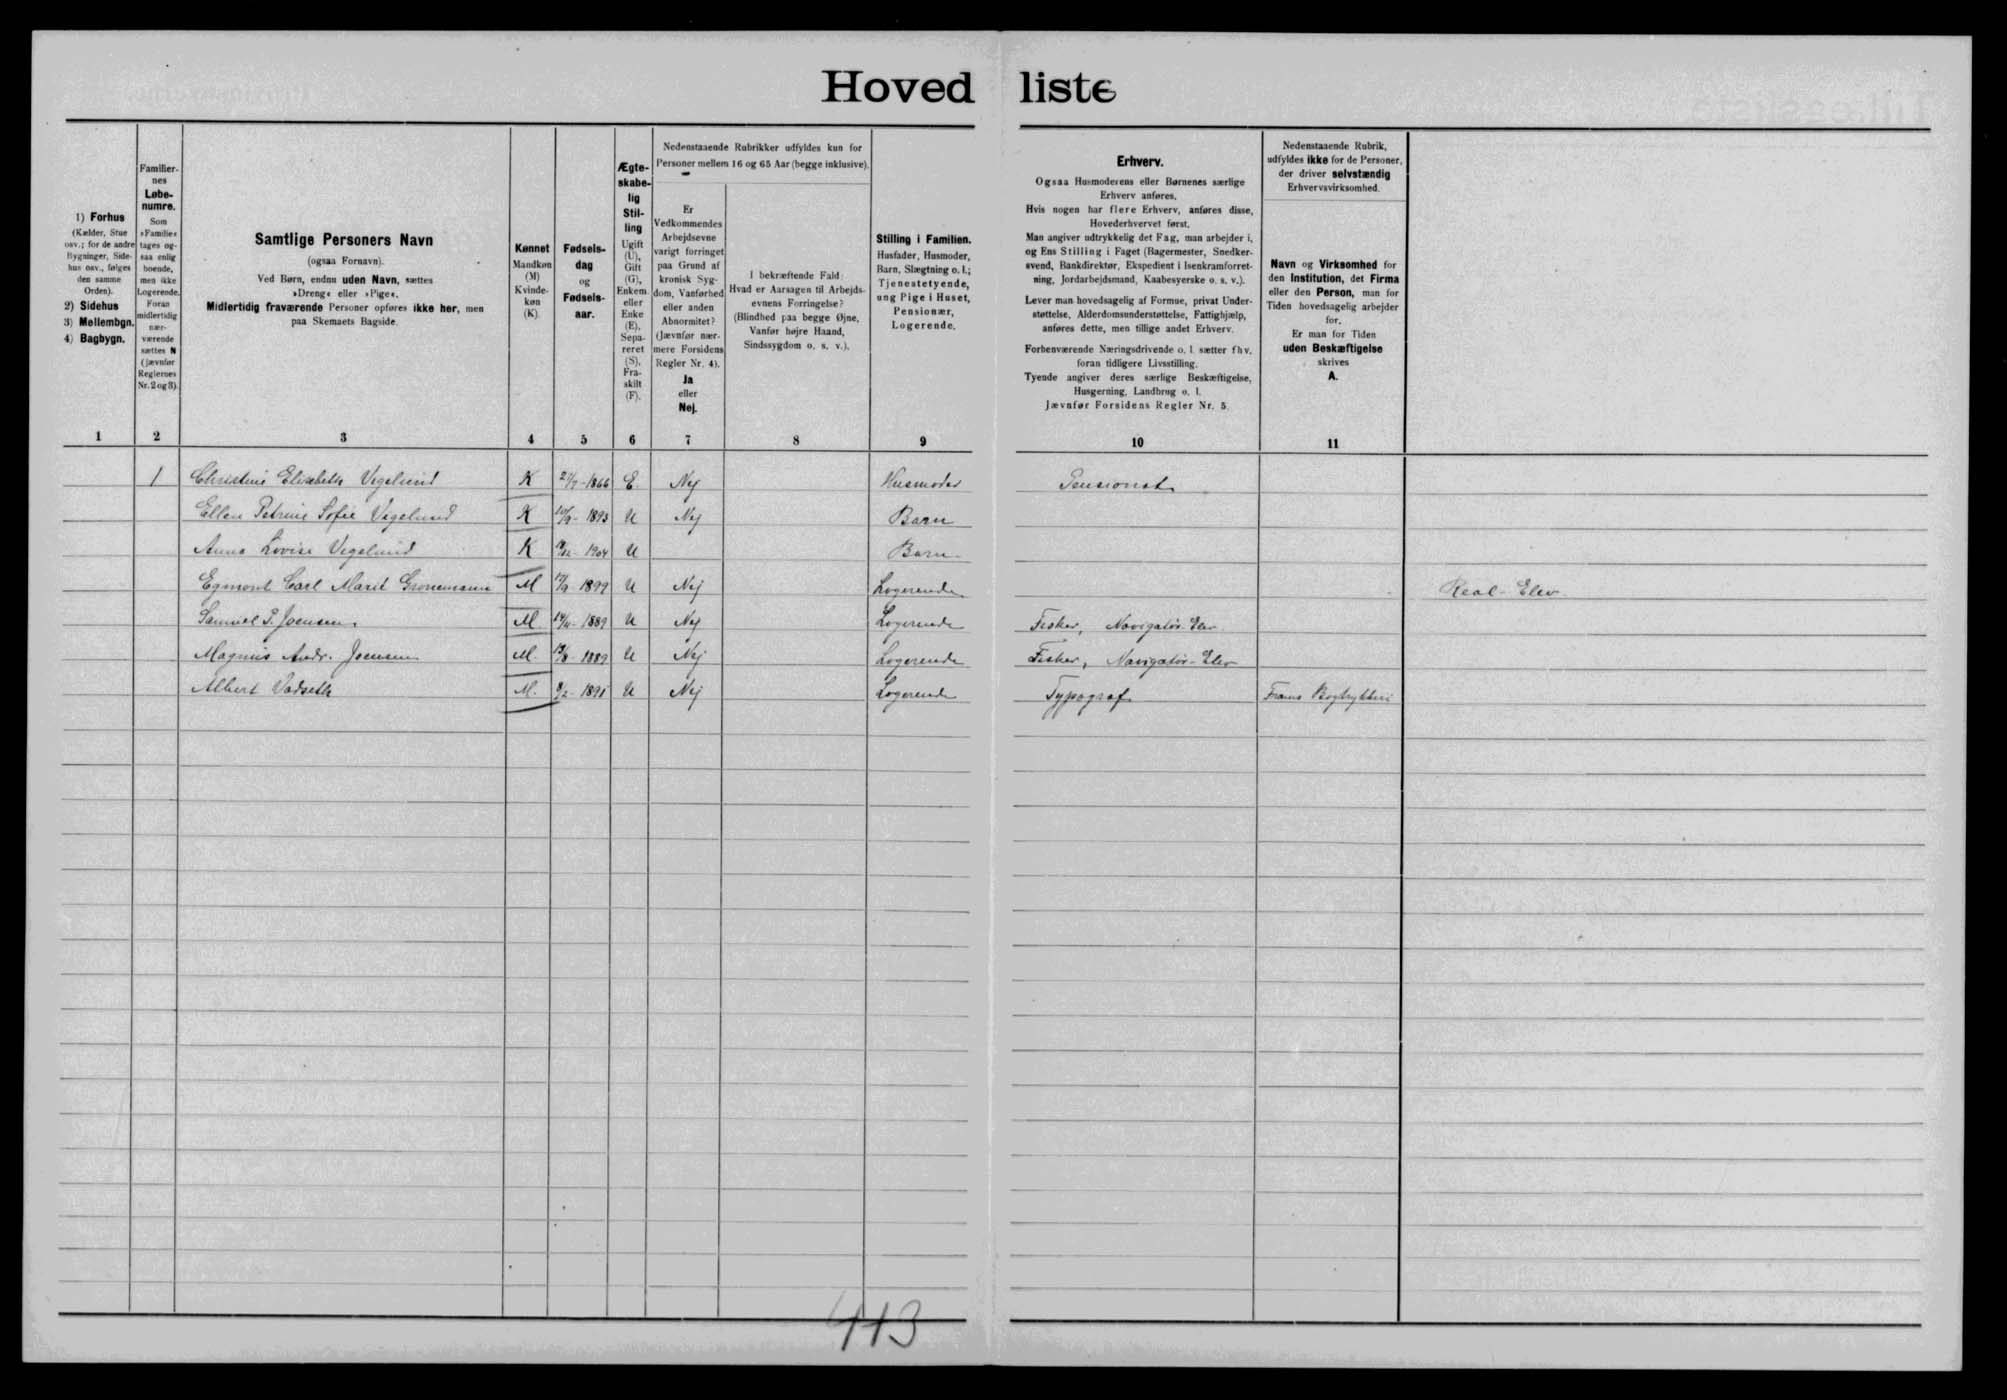 Hovedliste
1) Forhus
(Kælder, Stue
osv.; for de andre
Bygninger, Side-
hus osv., følges
den samme
Orden).
2) Sidehus
3) Mellembgn.
4) Bagbygn.
Familier-
nes
Løbe-
numre.
Som
»Familie«
tages og-
saa enlig
boende,
men ikke
Logerende.
Foran
midlertidig
nær-
værende
sættes N
(jævnfør
Reglernes
Nr. 2 og 3).
Samtlige Personers Navn
(ogsaa Fornavn).
Ved Børn, endnu uden Navn, sættes
»Dreng« eller »Pige«.
Midlertidig fraværende Personer opføres ikke her, men
paa Skemaets Bagside.
Kønnet
Mandkøn
(M)
Kvinde-
køn
(K).
Fødsels-
dag
og
Fødsels-
aar.
Ægte-
skabe-
lig
Stil-
ling
Ugift
(U),
Gift
(G),
Enkem.
eller
Enke
(E),
Sepa-
reret
(S),
Fra-
skilt
(F).
Nedenstaaende Rubrikker udfyldes kun for
Personer mellem 16 og 65 Aar (begge inklusive).
Er
Vedkommendes
Arbejdsevne
varigt forringet
paa Grund af
kronisk Syg-
dom, Vanførhed
eller anden
Abnormitet?
(Jævnfør nær-
mere Forsidens
Regler Nr. 4).
Ja
eller
Nej.
I bekræftende Fald:
Hvad er Aarsagen til Arbejds-
evnens Forringelse?
(Blindhed paa begge Øjne,
Vanfør højre Haand,
Sindssygdom o. s. v.).
Stilling i Familien.
Husfader, Husmoder,
Barn, Slægtning o. l.;
Tjenestetyende,
ung Pige i Huset,
Pensionær,
Logerende.
Erhverv.
Ogsaa Husmoderens eller Børnenes særlige
Erhverv anføres.
Hvis nogen har flere Erhverv, anføres disse,
Hovederhvervet først.
Man angiver udtrykkelig det Fag, man arbejder i,
og Ens Stilling i Faget (Bagermester, Snedker-
svend, Bankdirektør, Ekspedient i Isenkramforret-
ning, Jordarbejdsmand, Kaabesyerske o. s. v.).
Lever man hovedsagelig af Formue, privat Under-
støttelse, Alderdomsunderstøttelse, Fattighjælp,
anføres dette, men tillige andet Erhverv.
Forhenværende Næringsdrivende o. l. sætter fhv.
foran tidligere Livsstilling.
Tyende angiver deres særlige Beskæftigelse,
Husgerning, Landbrug o. l.
Jævnfør Forsidens Regler Nr. 5.
Nedenstaaende Rubrik,
udfyldes ikke for de Personer,
der driver selvstændig
Erhvervsvirksomhed.
Navn og Virksomhed for
den Institution, det Firma
eller den Person, man for
Tiden hovedsagelig arbejder
for.
Er man for Tiden
uden Beskæftigelse
skrives
A.
1 2 3 4 5 6 7 8 9 10 11
1 Christine Elisabeth Vegelund K 1866 E. Nej Husmoder Pensionat
Ellen Petrine Sofie Vegelund K 1893 U Nej Barn
Anna Lovise Vegelund K 1904 U Barn
Egmont Carl Marit Gronemann M 1899 U Nej Logerende Real-Elev
Samuel P. Joensen M 1889 U Nej Logerende Fisker, Navigatør-Elev
Magnus Andr. Joensen M. 1889 U Nej Logerende Fisker, Navigatør-Elev
Albert Vadseth M. 8/2-1891 U Nej Logerende Typograf Frams Bogtrykkeri
413